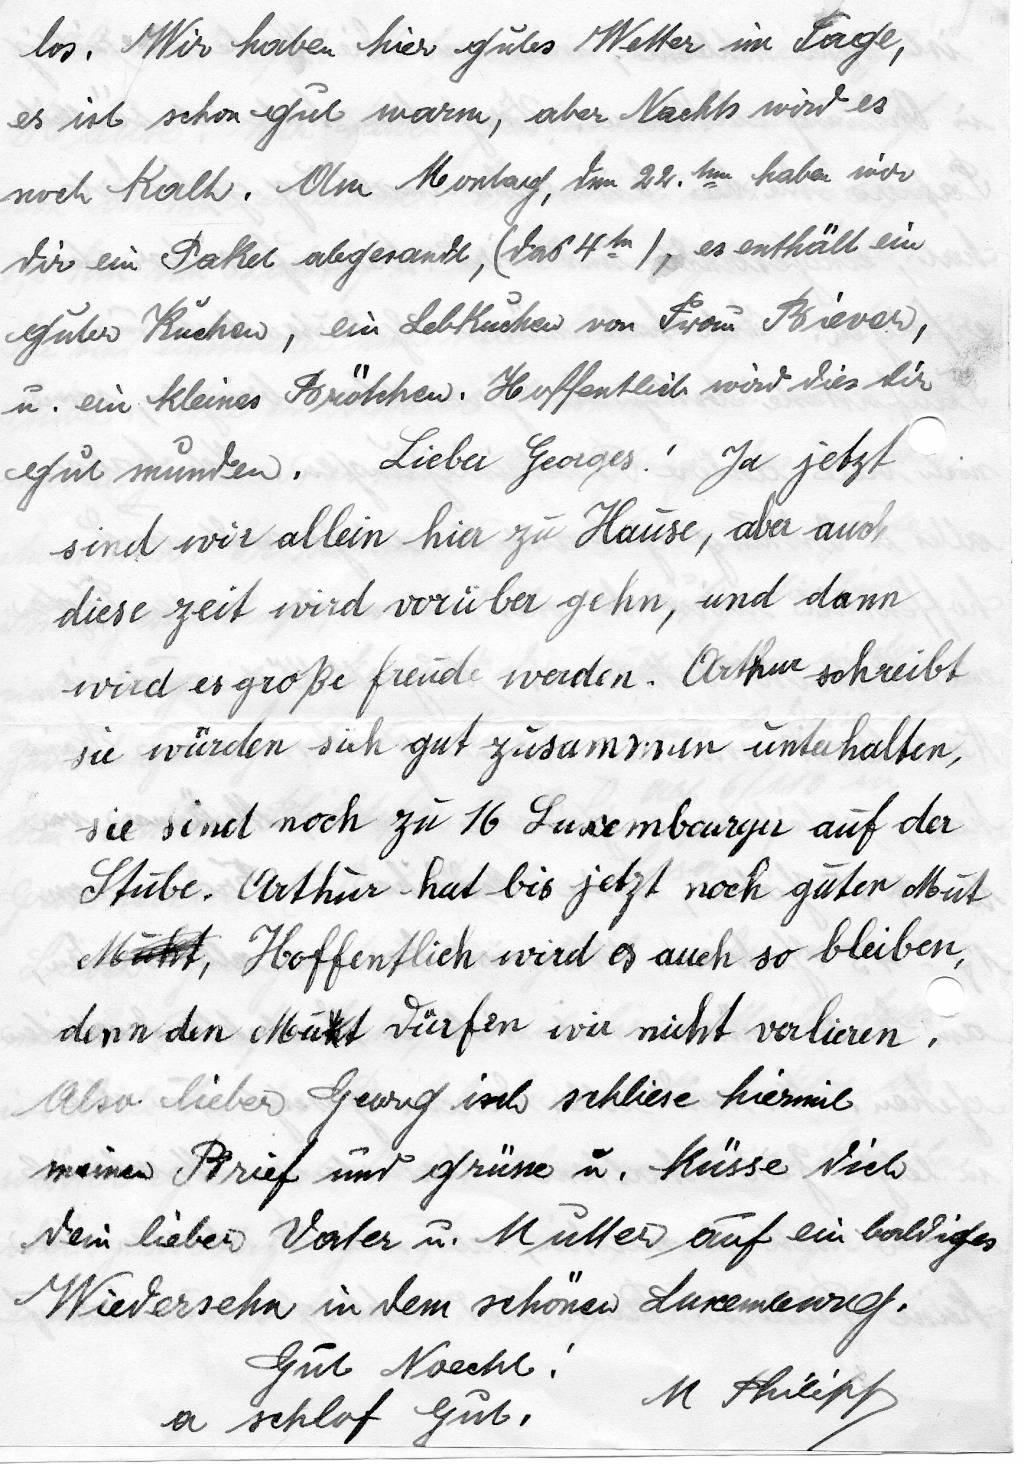 los. Wir haben hier gutes Wetter im Tage,
es ist schon gut warm, aber Nachts wird es
noch Kalt. Am Montag, den 22.ten haben wir
dir ein Paket abgesandt, (das 4te), es enthält ein
guter Kuchen, ein Lebkuchen von Frau Biever,
u. ein kleines Brötchen. Hoffentlich wird dies dir
gut munden. Lieber Georges! Ja jetzt
sind wir allein hier zu Hause, aber auch
diese zeit wird vorüber gehn, und dann
wird es große freude werden. Arthur schreibt
sie würden sich gut zusammen unterhalten,
sie sind noch zu 16 Luxemburger auf der
Stube. Arthur hat bis jetzt noch guten Mut
Hoffentlich wird es auch so bleiben,
denn den Mut dürfen wir nicht verlieren.
Also lieber Georg ich schliese hiermit
meinen Brief und grüsse u. küsse dich
dein lieber Vater u. Mutter auf ein baldiges
Wiedersehn in dem schönen Luxemburg.
Gut Naecht!
a schlof Gut. M Philipp